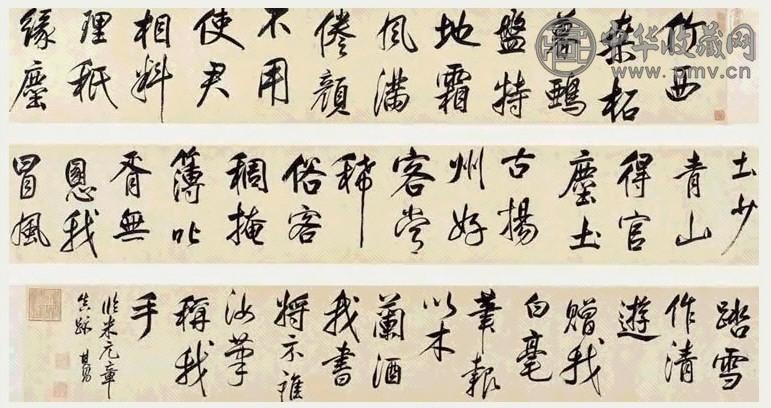 竹西
桑柘
暮鵶
盤特
地霜
風滿
倦顏
不用
使君
相料
理秖
緣塵
土少
青山
得官
塵土
古揚
州好
客常
稀
俗客
稠掩
簿叱
胥無
慁我
冒風
踏雪
作清
遊
贈我
白毫
筆報
以木
蘭酒
我書
將不誰
汝筆
稱我
手
臨米元章
真跡 其昌
中华收藏网
www.pmv.cn